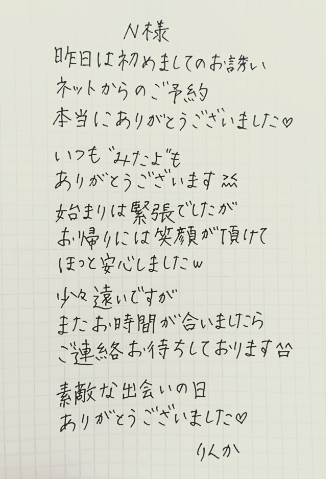 N様
昨日は初めましてのお誘い
ネットからのご予約
本当にありがとうございました♡
いつも"みたよ"も
ありがとうございます⺍
始まりは緊張でしたが
お帰りには笑顔が頂けて
ほっと安心しましたw
少々遠いですが
またお時間が合いましたら
ご連絡お待ちしております^^
素敵な出会いの日
ありがとうございました♡
りんか